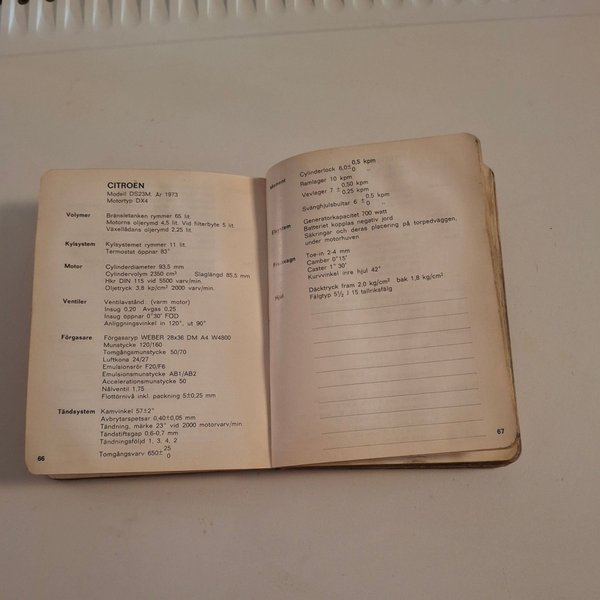 CITROËN
Modell DS23M. År 1973
Motortyp DX4
Volymer Bränsletanken rymmer 65 lit.
Motorns oljerymd 4,5 lit. Vid filterbyte 5 lit.
Växellådans oljerymd 2,25 lit.
Kylsystem Kylsystemet rymmer 11 lit.
Termostat öppnar 83°
Motor Cylinderdiameter 93,5 mm
Cylindervolym 2350 cm³ Slaglängd 85,5 mm
Hkr DIN 115 vid 5500 varv/min.
Oljetryck 3,8 kp/cm² 2000 varv/min.
Ventiler Ventilavstånd. (varm motor)
Insug 0,20 Avgas 0,25
Insug öppnar 0°30' FÖD
Anliggningsvinkel in 120°, ut 90°
Förgasare Förgasaryp WEBER 28x36 DM A4 W4800
Munstycke 120/160
Tomgångsmunstycke 50/70
Luftkona 24/27
Emulsionsrör F20/F6
Emulsionsmunstycke AB1/AB2
Accelerationsmunstycke 50
Nålventil 1.75
Flottörnivå inkl. packning 5±0,25 mm
Tändsystem Kamvinkel 57±2°
Avbrytarspetsar 0,40±0,05 mm
Tändning, märke 23° vid 2000 motorvarv/min.
Tändstiftsgap 0,6-0,7 mm
Tändningsföljd 1, 3, 4, 2
Tomgångsvarv 650± 25 0
66
Moment Cylinderlock 6,0± 0,5 kpm 0 ,,
Ramlager 10 kpm
Vevlager 7 ± 0,50 kpm 0,25 kpm
Svänghjulsbultar 6 ± 0,5 0
Elsystem Generatorkapacitet 700 watt
Batteriet kopplas negativ jord
Säkringar och deras placering på torpedväggen,
under motorhuven
Toe-in 2-4 mm
Camber 0°15'
Caster 1° 30'
Kurvvinkel inre hjul 42°
Hjul Däcktryck fram 2,0 kg/cm² bak 1,8 kg/cm²
Fälgtyp 5½ J 15 tallriksfälg
67